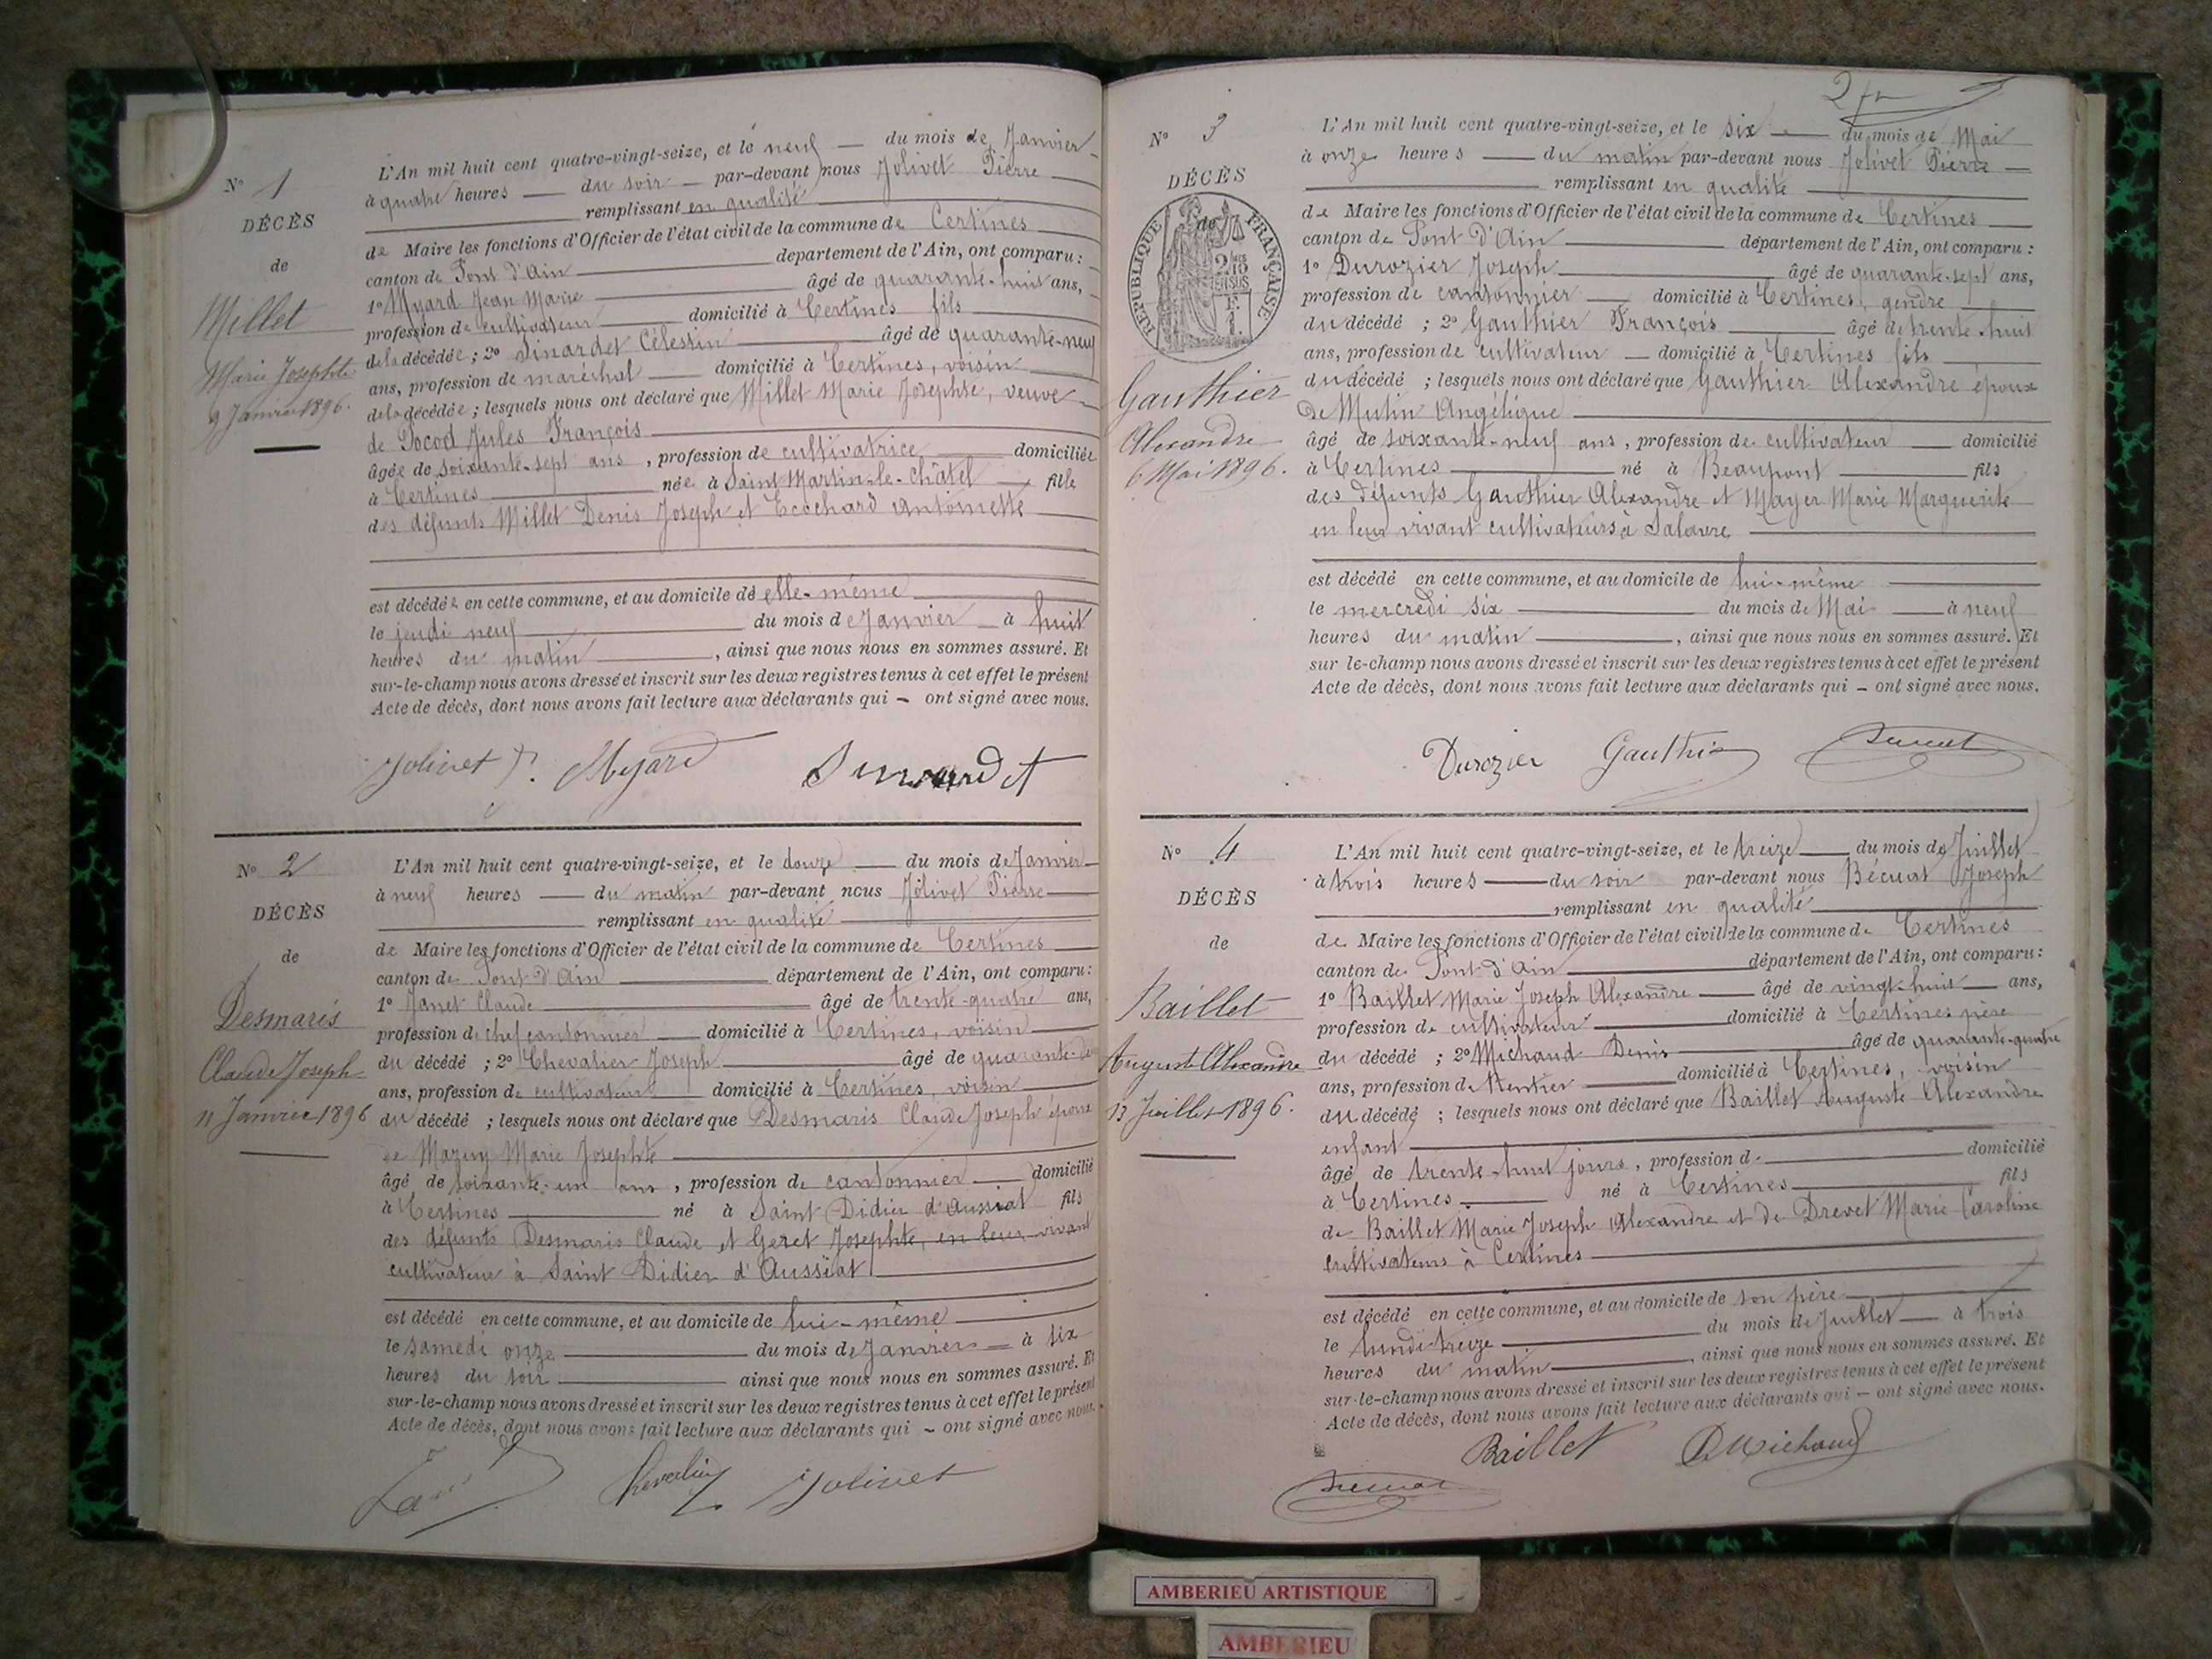 N° 1
DÉCÈS
de
Millet
Marie Josephte
9 Janvier 1896.
L'An mil huit cent quatre-vingt-seize, et le neuf — du mois de Janvier
à quatre heures — du soir — par-devant nous Jolivet Pierre
remplissant en qualité
de Maire les fonctions d'Officier de l'état civil de la commune de Certines
canton de Pont d'Ain département de l'Ain, ont comparu :
1° Myard Jean Marie âgé de quarante-huit ans,
profession de cultivateur domicilié à Certines fils
de la décédée ; 2° Sinardet Célestin âgé de quarante-neuf
ans, profession de maréchal domicilié à Certines, voisin
de la décédée ; lesquels nous ont déclaré que Millet Marie Josephte, veuve
de Socod Jules François
âgée de soixante-sept ans , profession de cultivatrice domiciliée
à Certines née à Saint Martin-le-Châtel fille
des défunts Millet Denis Joseph et Ecochard Antoinette
est décédée en cette commune, et au domicile de elle-même
le jeudi neuf du mois de Janvier à huit
heures du matin , ainsi que nous nous en sommes assuré. Et
sur-le-champ nous avons dressé et inscrit sur les deux registres tenus à cet effet le présent
Acte de décès, dont nous avons fait lecture aux déclarants qui — ont signé avec nous.
Jolivet P. Myard Sinardet
N° 2
DÉCÈS
de
Desmaris
Claude Joseph
11 Janvier 1896
L'An mil huit cent quatre-vingt-seize, et le douze — du mois de Janvier
à neuf heures — du matin par-devant nous Jolivet Pierre
remplissant en qualité
de Maire les fonctions d'Officier de l'état civil de la commune de Certines
canton de Pont d'Ain département de l'Ain, ont comparu :
1° Janet Claude âgé de trente-quatre ans,
profession de chef cantonnier domicilié à Certines, voisin
du décédé ; 2° Chevalier Joseph âgé de quarante-
ans, profession de cultivateur domicilié à Certines, voisin
du décédé ; lesquels nous ont déclaré que Desmaris Claude Joseph époux
de Marie Josephte
âgé de soixante-un ans , profession de cantonnier domicilié
à Certines né à Saint Didier d'Aussiat fils
des défunts Desmaris Claude et Geret Josephte, en leur vivant
cultivateur à Saint Didier d'Aussiat
est décédé en cette commune, et au domicile de lui-même
le samedi onze du mois de Janvier — à six
heures du soir ainsi que nous nous en sommes assuré. Et
sur-le-champ nous avons dressé et inscrit sur les deux registres tenus à cet effet le présent
Acte de décès, dont nous avons fait lecture aux déclarants qui — ont signé avec nous.
Chevalier Jolivet
N° 3
DÉCÈS
de
RÉPUBLIQUE FRANÇAISE
Gauthier
Alexandre
6 Mai 1896.
L'An mil huit cent quatre-vingt-seize, et le six — du mois de Mai
à onze heures — du matin par-devant nous Jolivet Pierre —
remplissant en qualité
de Maire les fonctions d'Officier de l'état civil de la commune de Certines
canton de Pont d'Ain département de l'Ain, ont comparu :
1° Durozier Joseph âgé de quarante-sept ans,
profession de cantonnier domicilié à Certines, gendre
du décédé ; 2° Gauthier François âgé de trente-huit
ans, profession de cultivateur — domicilié à Certines fils
du décédé ; lesquels nous ont déclaré que Gauthier Alexandre époux
de Mutin Angélique
âgé de soixante-neuf ans , profession de cultivateur domicilié
à Certines né à Beaupont fils
des défunts Gauthier Alexandre et Mayer Marie Marguerite
en leur vivant cultivateurs à Salavre
est décédé en cette commune, et au domicile de lui-même
le mercredi six du mois de Mai — à neuf
heures du matin , ainsi que nous nous en sommes assuré. Et
sur le-champ nous avons dressé et inscrit sur les deux registres tenus à cet effet le présent
Acte de décès, dont nous avons fait lecture aux déclarants qui — ont signé avec nous.
Durozier Gauthier
N° 4
DÉCÈS
de
Baillet
Auguste Alexandre
13 Juillet 1896.
L'An mil huit cent quatre-vingt-seize, et le treize — du mois de Juillet
à trois heures — du soir par-devant nous Bécuat Joseph
remplissant en qualité
de Maire les fonctions d'Officier de l'état civil de la commune de Certines
canton de Pont d'Ain département de l'Ain, ont comparu :
1° Baillet Marie Joseph Alexandre — âgé de vingt-huit — ans,
profession de cultivateur domicilié à Certines père
du décédé ; 2° Michaud Denis âgé de quarante-quatre
ans, profession de Rentier domicilié à Certines, voisin
du décédé ; lesquels nous ont déclaré que Baillet Auguste Alexandre
enfant
âgé de trente-huit jours , profession d domicilié
à Certines né à Certines fils
de Baillet Marie Joseph Alexandre et de Drevet Marie Caroline
cultivateurs à Certines
est décédé en cette commune, et au domicile de son père
le lundi treize du mois de Juillet — à trois
heures du matin , ainsi que nous nous en sommes assuré. Et
sur-le-champ nous avons dressé et inscrit sur les deux registres tenus à cet effet le présent
Acte de décès, dont nous avons fait lecture aux déclarants qui — ont signé avec nous.
Baillet D Michaud
AMBERIEU ARTISTIQUE
AMBERIEU